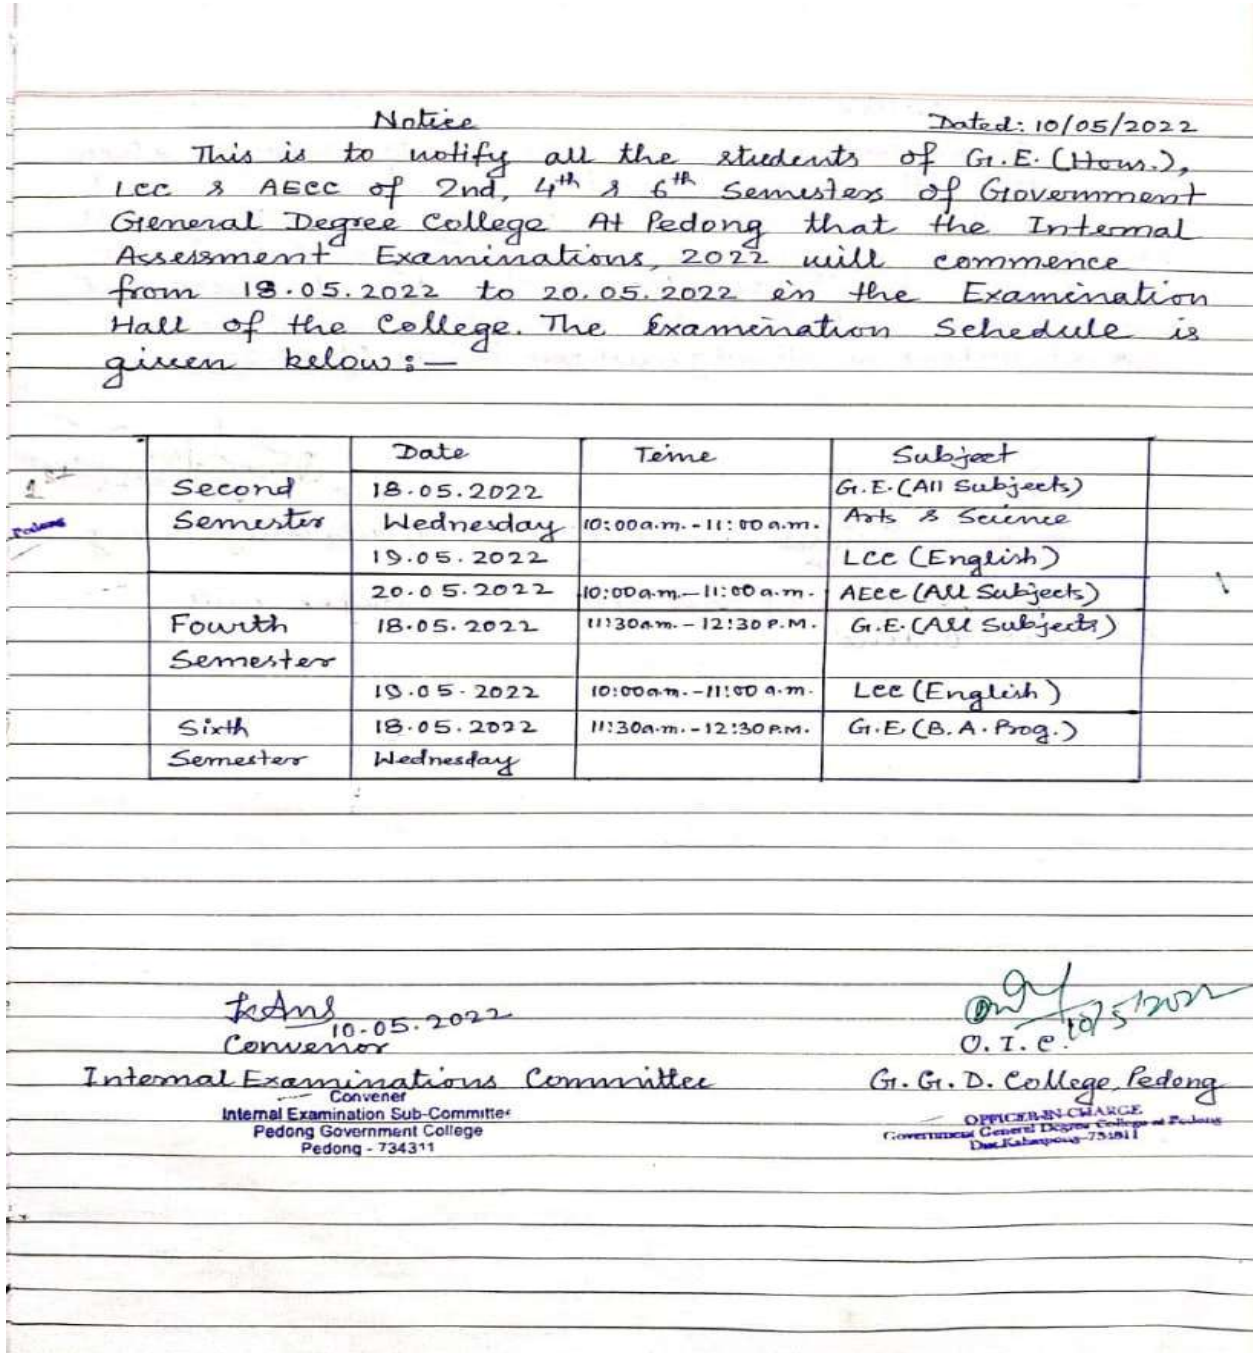 Notice Dated: 10/05/2022
This is to notify all the students of G.E. (Hons.),
LCC & AECC of 2nd, 4th & 6th Semesters of Government
General Degree College At Pedong that the Internal
Assessment Examinations, 2022 will commence
from 18.05.2022 to 20.05.2022 in the Examination
Hall of the College. The Examination Schedule is
given below:—
Date Time Subject
Second 18.05.2022 G.E.(All Subjects)
Semester Wednesday 10:00a.m.-11:00a.m. Arts & Science
19.05.2022 LCC (English)
20.05.2022 10:00a.m.-11:00a.m. AECC (All Subjects)
Fourth 18.05.2022 11:30am.-12:30P.M. G.E.(All Subjects)
Semester
19.05.2022 10:00a.m.-11:00a.m. LCC (English)
Sixth 18.05.2022 11:30a.m.-12:30P.M. G.E.(B.A.Prog.)
Semester Wednesday
1st
Pedong
10.05.2022 10/5/2022
Convenor O.I.C.
Internal Examinations Committee G.G.D. College, Pedong
Convener
Internal Examination Sub-Committee
Pedong Government College
Pedong - 734311
OFFICER-IN-CHARGE
Government General Degree College at Pedong
Dist. Kalimpong-734311